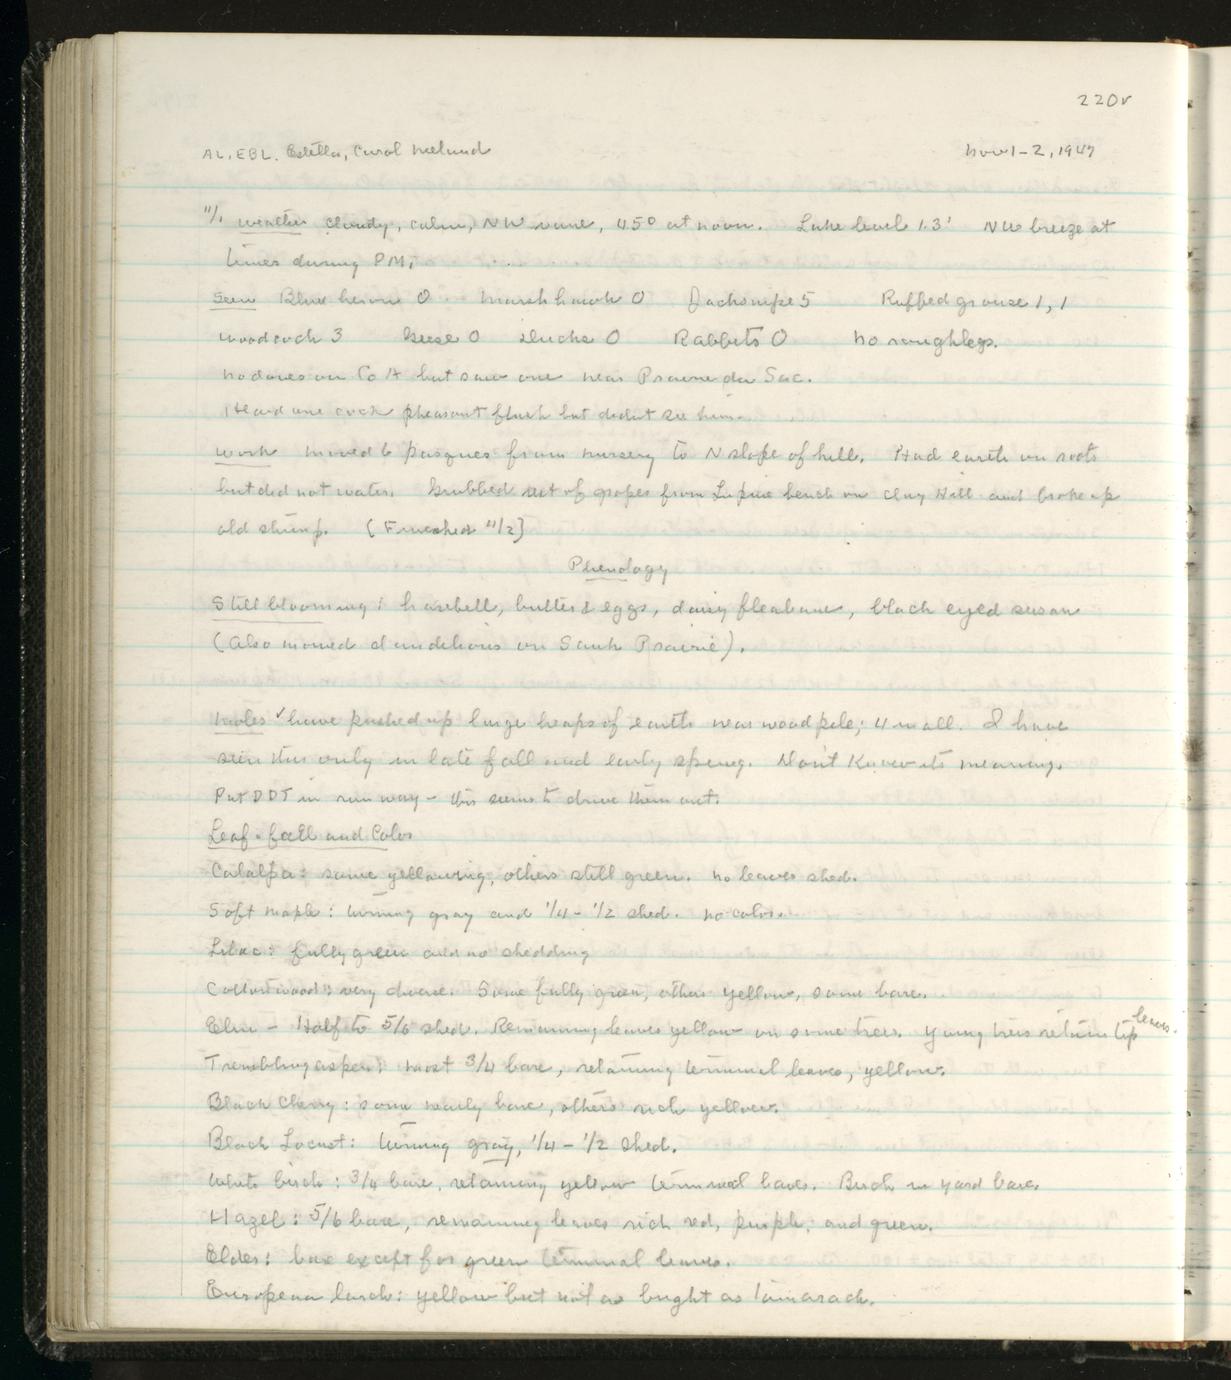 220r
AL, EBL, Estella, Carol                Nov 1-2, 1947
11/1 Weather cloudy, calm, NW vane, 45° at noon. Lake level 1.3' NW breeze at
times during PM.
Seen Blue heron 0 Marsh hawk 0 Jacksnipe 5 Ruffed grouse 1, 1
Woodcock 3 Geese 0 Ducks 0 Rabbits 0 No roughlegs.
No doves on Co A but saw one near Prairie du Sac.
Heard one cock pheasant flush but didnt see him.
Work Moved 6 pasques from nursery to N slope of hill. Had earth on roots
but did not water. Grubbed out of grapes from Lupine bench on Clay Hill and broke up
old stump. (Finished 11/2)
Phenology
Still blooming: harebell, butter & eggs, daisy fleabane, black eyed susan
(Also mowed dandelions on Sauk Prairie).
Moles ✓ have pushed up large heaps of earth near woodpile; 4 in all. I have
seen this only in late fall and early spring. Don't know its meaning.
Put DDT in runway - this seems to drive them out.
Leaf-fall and Color
Catalpa: some yellowing, others still green. No leaves shed.
Soft maple: turning gray and 1/4 - 1/2 shed. No color.
Lilac: fully green and no shedding
Cottonwood: very diverse. Some fully green, others yellow, some bare.
Elm - Half to 5/6 shed. Remaining leaves yellow on some trees. Young trees retain tip leaves.
Trembling aspen: most 3/4 bare, retaining terminal leaves, yellow.
Black Cherry: some nearly bare, others rich yellow.
Black Locust: turning gray, 1/4 - 1/2 shed.
White birch: 3/4 bare, retaining yellow terminal leaves. Birch in yard bare.
Hazel: 5/6 bare, remaining leaves rich red, purple, and green.
Elder: bare except for green terminal leaves.
European larch: yellow but not as bright as tamarack.